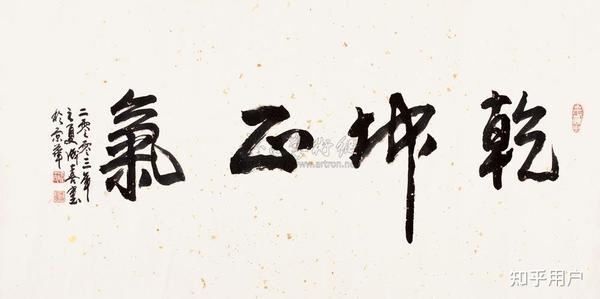 乾坤正氣
二零零三年
之夏成喜書
於京華
www.artron.net
知乎用户